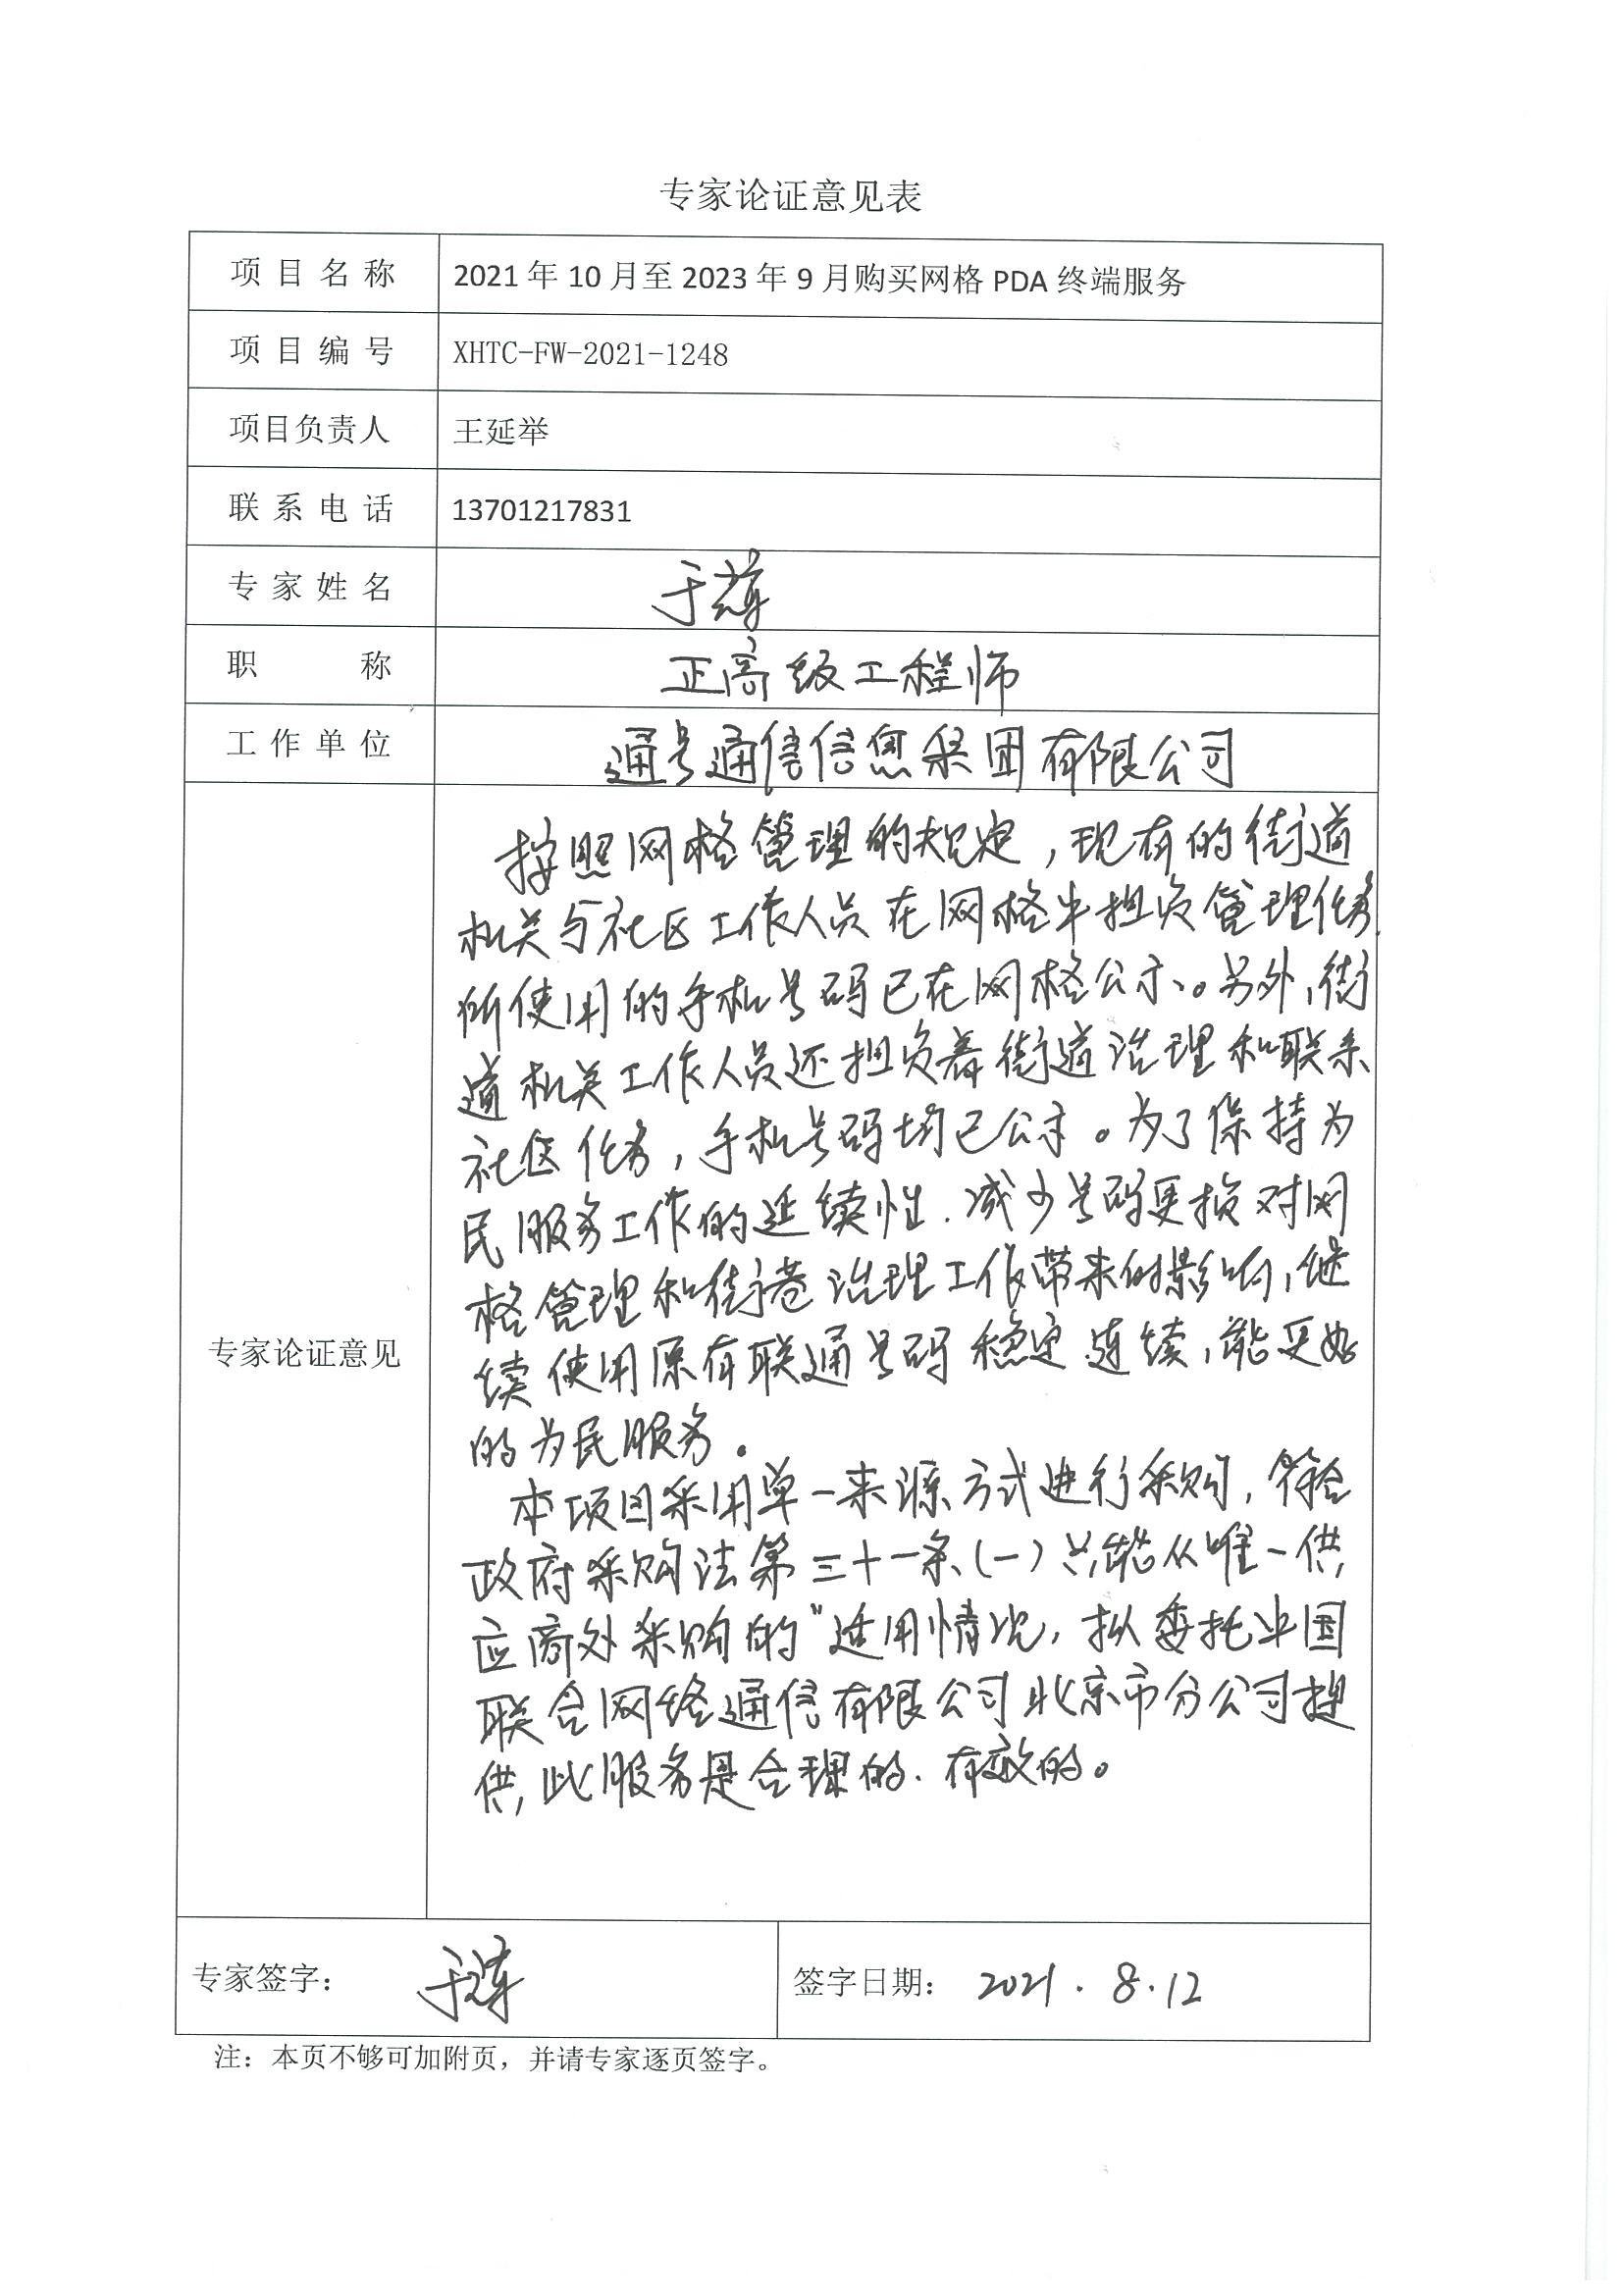 专家论证意见表
项目名称 2021年10月至2023年9月购买网格PDA终端服务
项目编号 XHTC-FW-2021-1248
项目负责人 王延举
联系电话 13701217831
专家姓名 于
职称 正高级工程师
工作单位 通号通信信息集团有限公司
按照网格管理的规定,现有的街道
机关与社区工作人员在网格中担负管理任务
所使用的手机号码已在网格公示。另外,街
道机关工作人员还担负着街道治理和联系
社区任务,手机号码均已公示。为了保持为
民服务工作的延续性、减少号码更换对网
格管理和街巷治理工作带来的影响,继
专家论证意见
续使用原有联通号码稳定、连续,能更好
的为民服务。
本项目采用单一来源方式进行采购,符合
政府采购法第三十一条(一)只能从唯一供
应商处采购的"适用情况,拟委托中国
联合网络通信有限公司北京市分公司提
供此服务是合理的、有效的。
专家签字: 于 签字日期: 2021.8.12
注:本页不够可加附页,并请专家逐页签字。